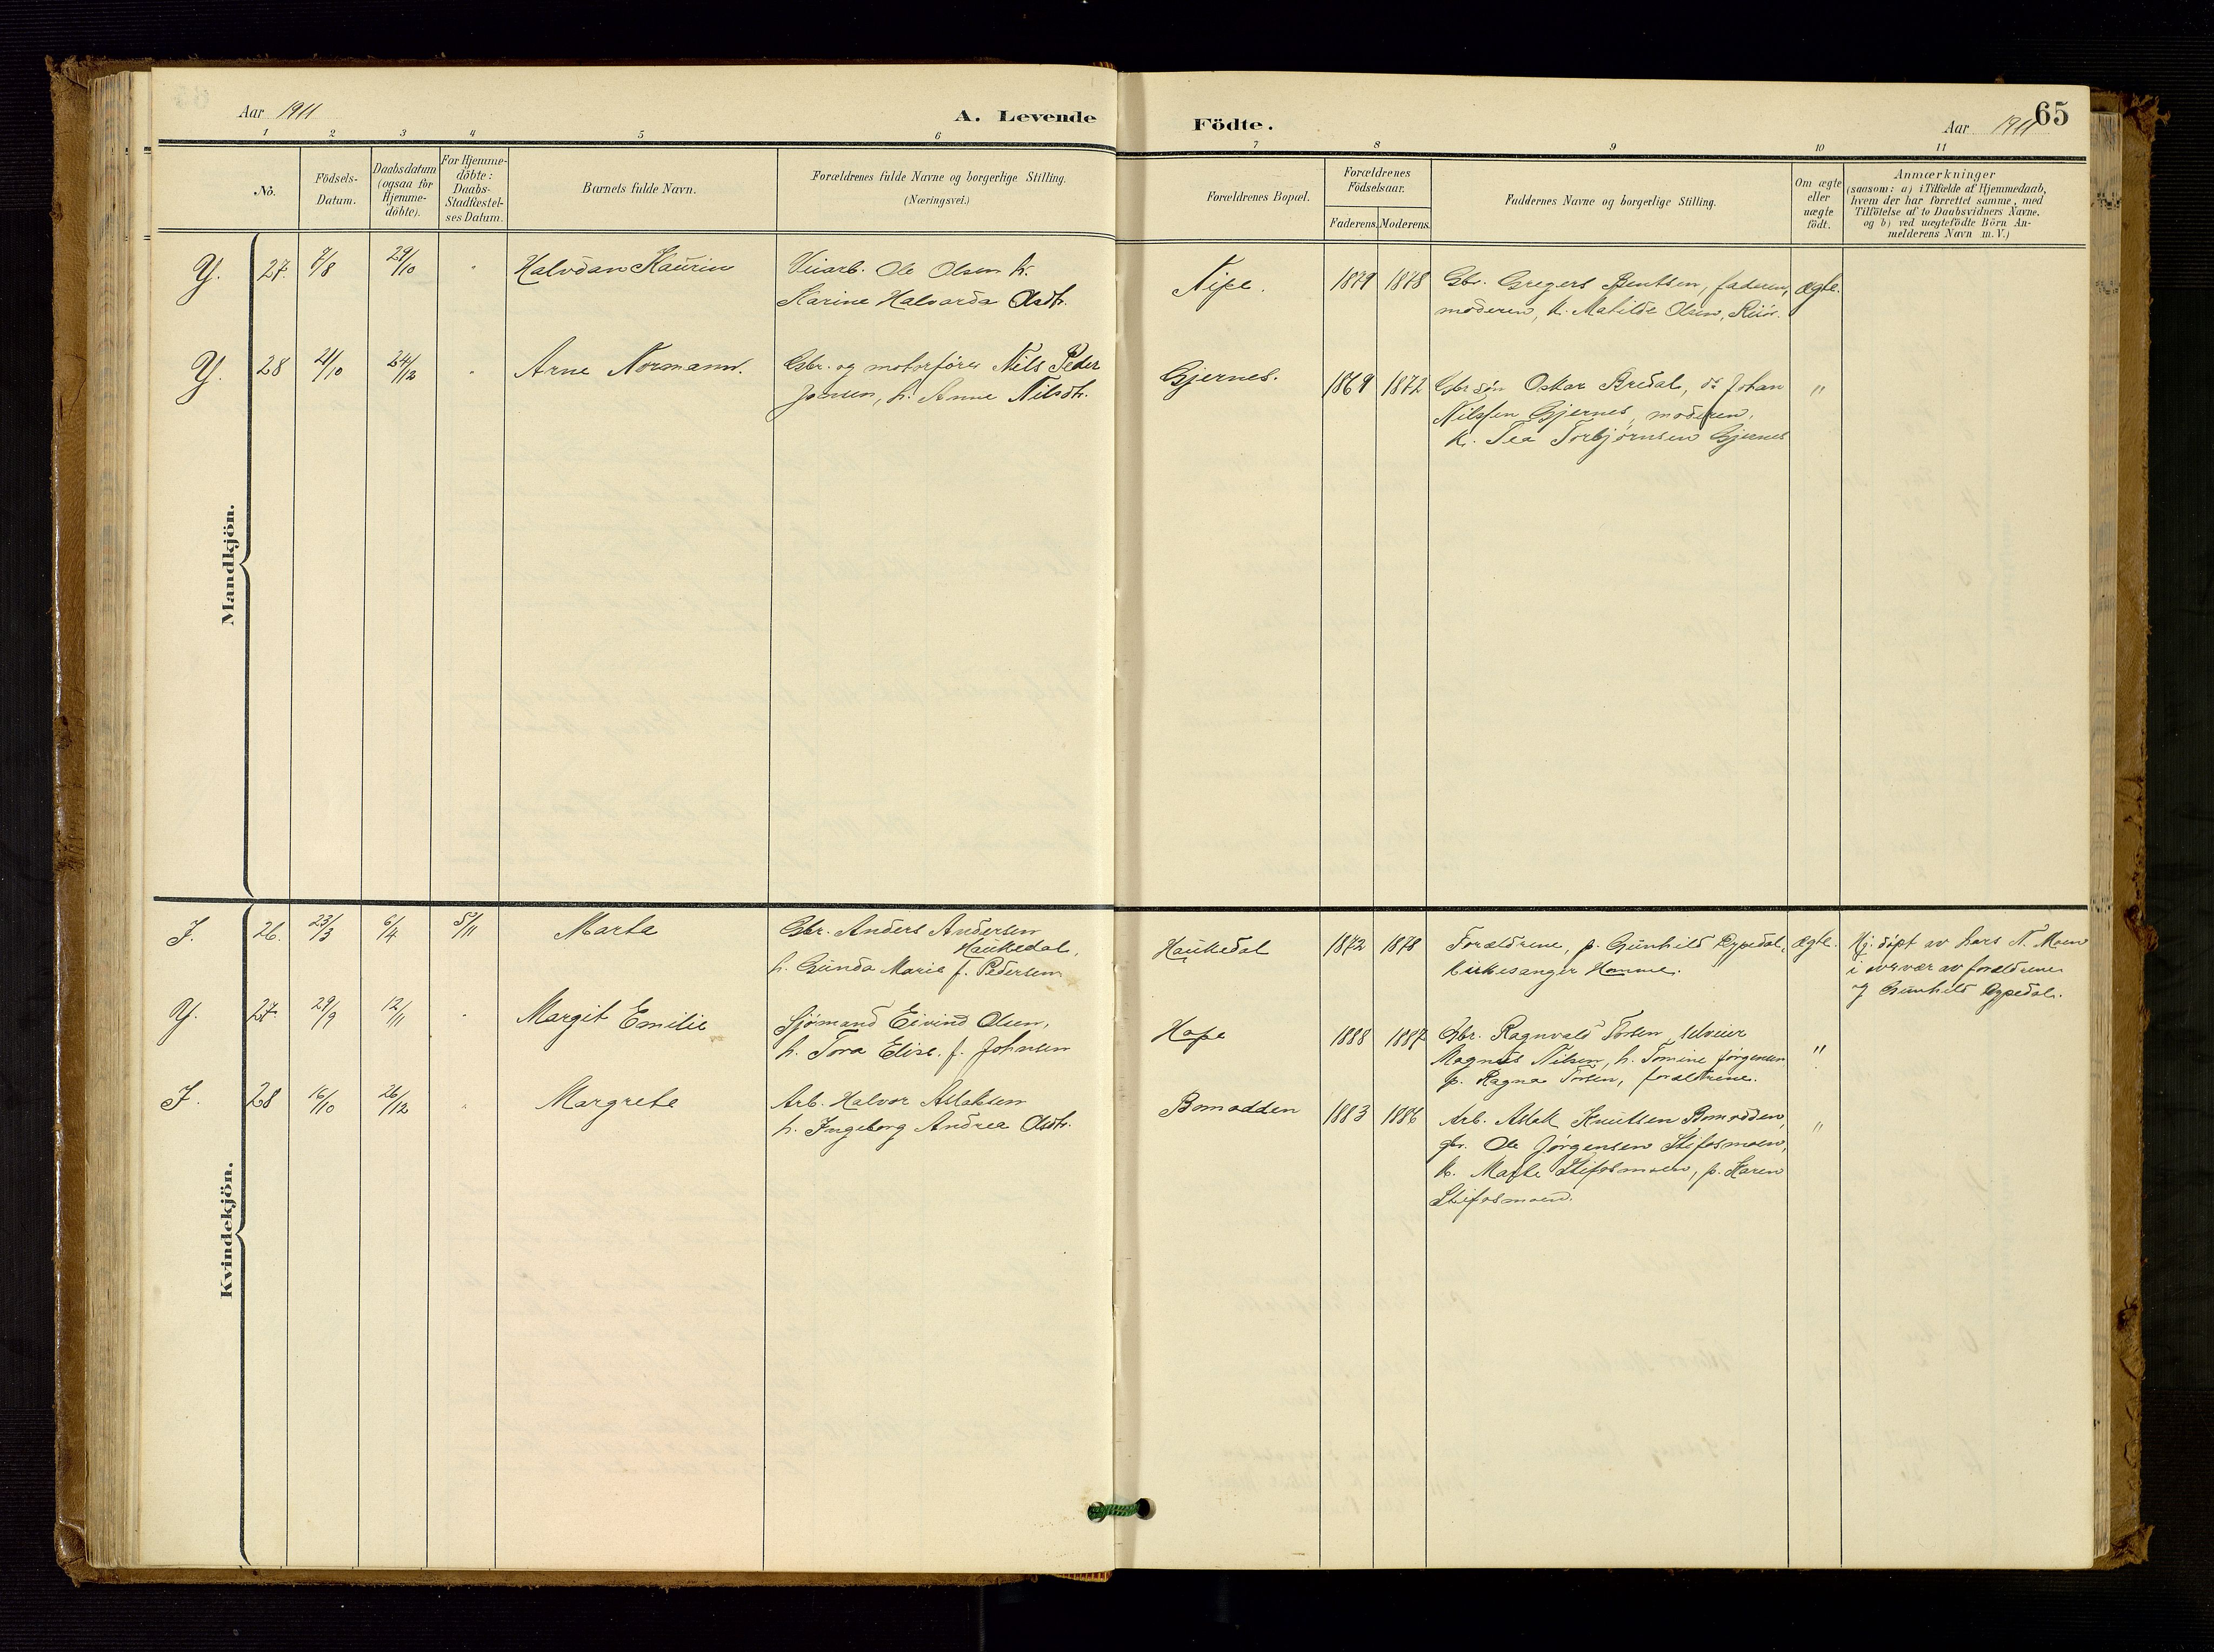 Aar 1911
A. Levende
Födte.
Aar 1911
65
1 2 3 4 5 6 7 8 9 10 11
No.
Födsels-
Datum.
Daabsdatum
(ogsaa for
Hjemme-
döbte).
For Hjemme-
döbte:
Daabs-
Stadfæstel-
ses Datum.
Barnets fulde Navn.
Forældrenes fulde Navne og borgerlige Stilling.
(Næringsvei.)
Forældrenes Bopæl.
Forældrenes
Födselsaar.
Faderens. Moderens.
Faddernes Navne og borgerlige Stilling.
Om ægte
eller
uægte
födt.
Anmærkninger
(saasom: a) i Tilfælde af Hjemmedaab,
hvem der har forrettet samme, med
Tilföielse af to Daabsvidners Navne,
og b) ved uægtefödte Börn An-
melderens Navn m. V.)
Mandkjön.
Y. 27. 7/8 29/10 " Halvdan Kaurin
Veiarb. Ole Olsen h.
Karine Halvarda Olsdtr.
Nipe. 1879 1878
Gbr. Gregers Bentsen, faderen,
moderen, k. Matilde Olsen, Risör.
ægte.
Y. 28 21/10 24/12 " Arne Normann.
Gbr. og motorförer Nils Peder
Jensen, h. Anne Nilsdtr.
Gjernes. 1869 1872
Gbr sön Oskar Bredal, do Johan
Nilssen Gjernes, moderen,
k. Tea Torbjörnsen Gjernes
"
Kvindekjön.
J. 26. 23/3 6/4 5/11 Marta
Gbr. Anders Andersen
Haukedal,
h. Gunda Marie f. Pedersen
Haukedal 1872 1878
Forældrene, p. Gunhild Rypedal,
kirkesanger Homme.
ægte.
Hj. döpt av Lars N. Moen
i overvær av forældrene
og Gunhild Rypedal.
Y. 27. 29/9 12/11 " Margit Emilie
Sjömand Eivind Olsen,
h. Tora Elise f. Johnsen
Hope 1888 1887
Gbr. Ragnvald Torsen, selveier
Magnus Nilsen, h. Tomine Jörgensen
p. Ragna Torsen, forældrene.
"
J. 28 16/10 26/12 " Margrete
Arb. Halvor Aslaksen
h. Ingeborg Andrea Olsdtr.
Bomodden 1883 1886
Arb. Aslak Knutsen Bomodden,
gbr. Ole Jörgensen Stifosmoen,
k. Marte Stifosmoen, p. Karen
Stifosmoen.
"